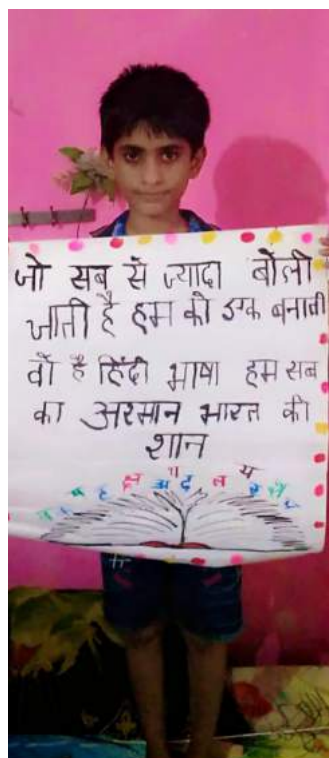 जो सब से ज्यादा बोली
जाती है हम को एक बनाती
वो है हिंदी भाषा हम सब
का अरमान भारत की
शान
क्ष अ द ल य